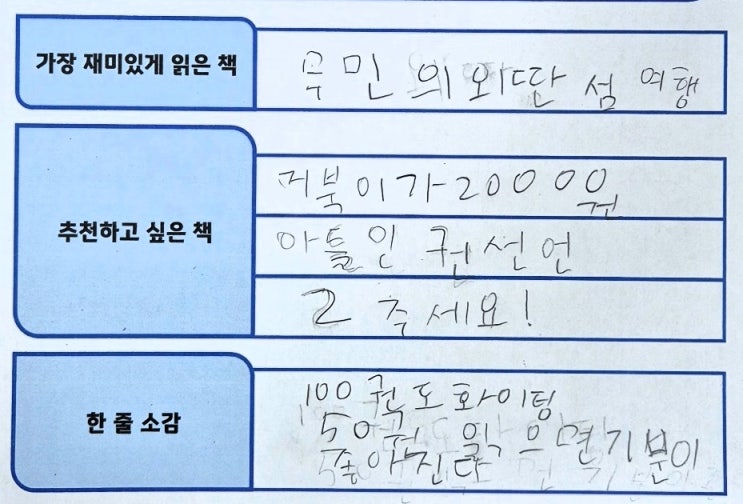 가장 재미있게 읽은 책
무민의 외딴 섬 여행
추천하고 싶은 책
거북이가 20000원
아틀인권선언
2 주세요!
한 줄 소감
100권도 화이팅
50권 읽으면 기분이
좋아진다